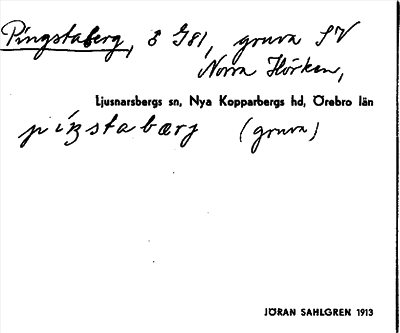 Pingstaberg, 3 G81, gruva SV
Norra Hörken,
Ljusnarsbergs sn, Nya Kopparbergs hd, Örebro län
(gruva)
JÖRAN SAHLGREN 1913